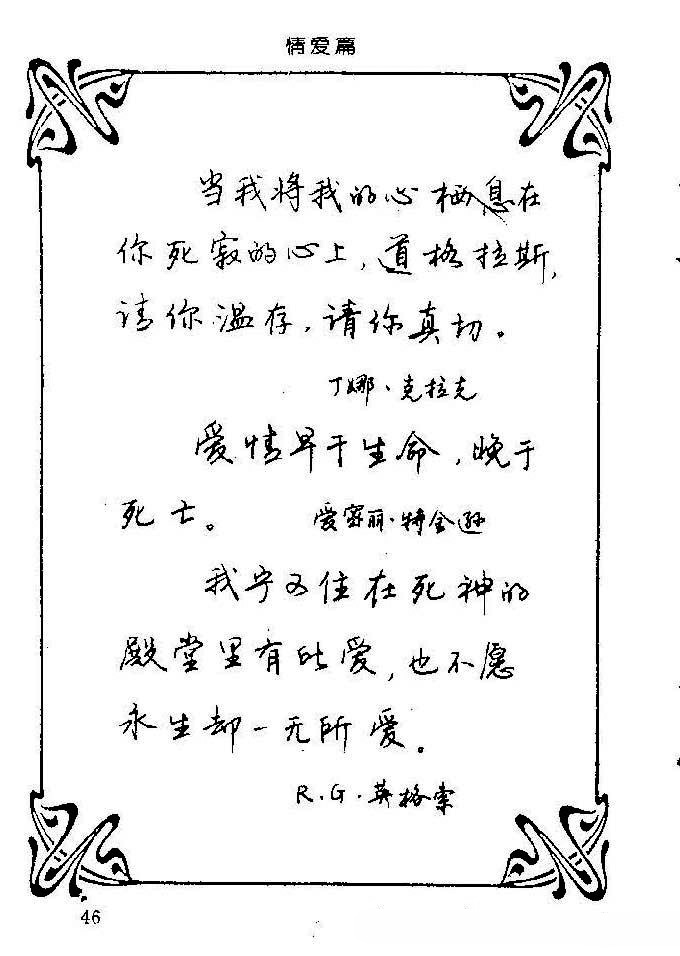 情爱篇
当我将我的心栖息在
你死寂的心上，道格拉斯，
请你温存，请你真切。
丁娜·克拉克
爱情早于生命，晚于
死亡。 爱密丽·特金逊
我宁可住在死神的
殿堂里有此爱，也不愿
永生却一无所爱。
R·G·英格索
46